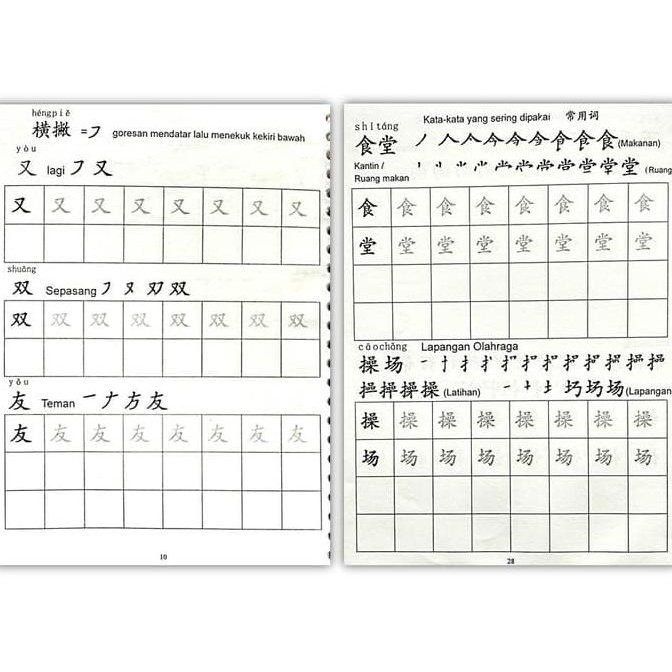 héngpiě
横撇 =㇇ goresan mendatar lalu menekuk kekiri bawah
yòu
又 lagi ㇇ 又
又 又 又 又 又 又 又 又
shuāng
双 Sepasang ㇇ ヌ 双 双
双 双 双 双 双 双 双 双
yǒu
友 Teman 一 ナ 方 友
友 友 友 友 友 友 友 友
10
Kata-kata yang sering dipakai 常用词
shítáng
食堂 (Makanan)
Kantin /
Ruang makan (Ruang
食 食 食 食 食 食 食 食
堂 堂 堂 堂 堂 堂 堂 堂
cāochǎng Lapangan Olahraga
操场
操 (Latihan) 场 (Lapangan
操 操 操 操 操 操 操 操
场 场 场 场 场 场 场 场
28